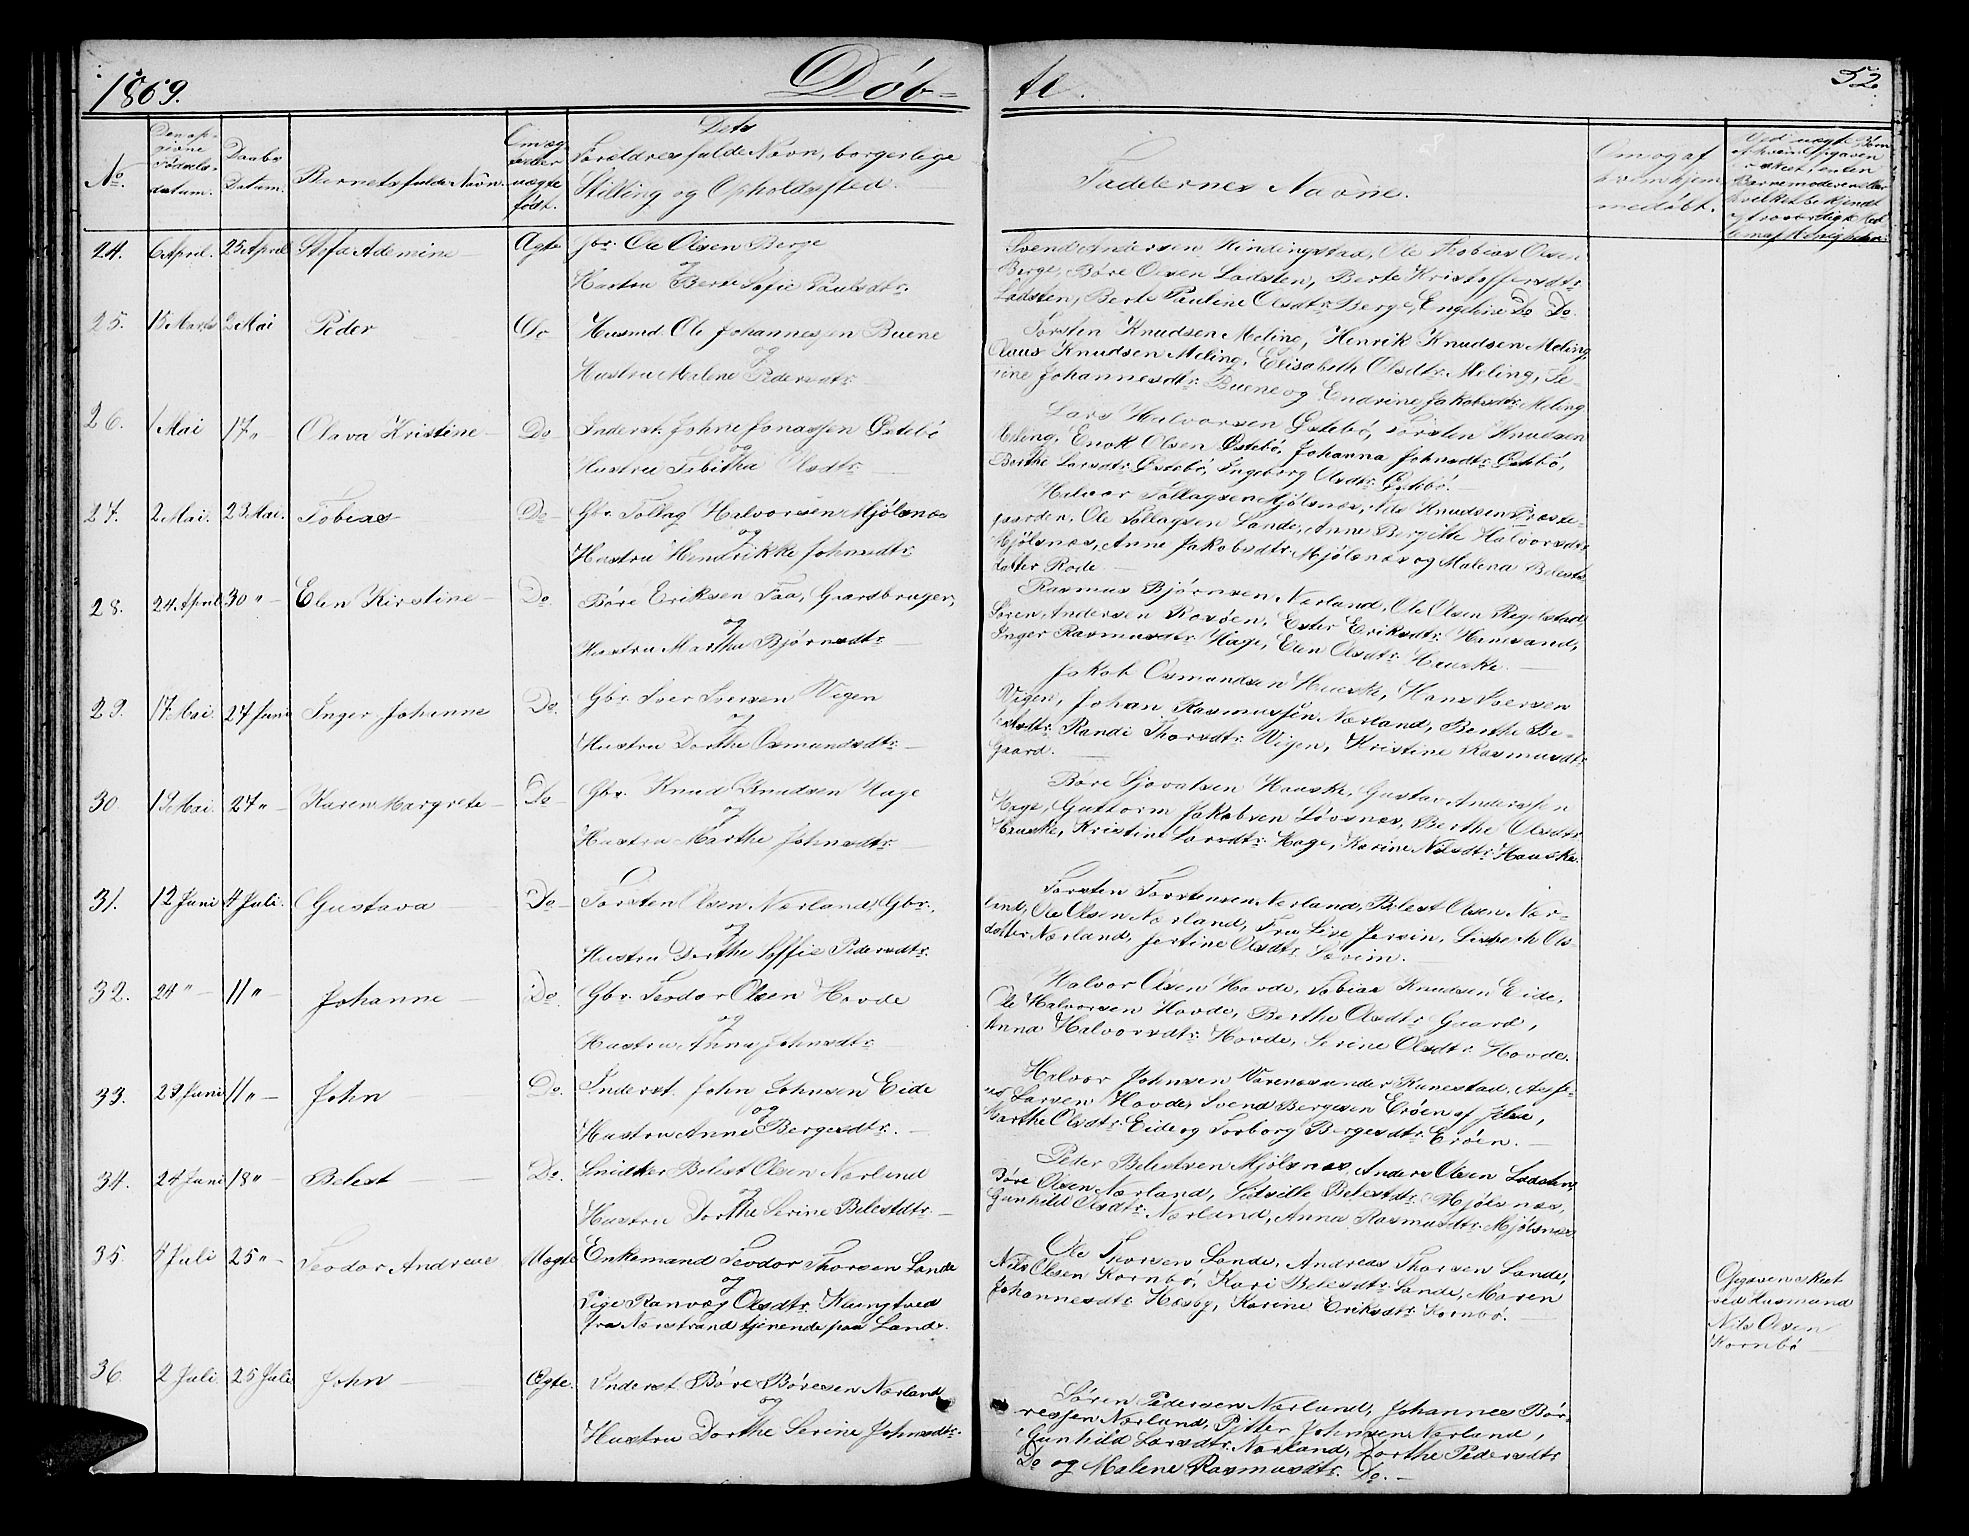 1869. Døb-
te. 52.
No. Den opgivne Fødselsdatum. Daabs Datum. Barnets fulde Navn. Om ægte eller uægte født. Dets Forældres fulde Navn, borgerlige Stilling og Opholdssted. Faddernes Navne.
24. 6 April. 25 April Ademine Ægte Gbr. Ole Olsen Berge
og
Hustru Berte Sofie Paulsdtr.
Svend Andersen Hindingstad, Ole Tobias Olsen
Berge, Børe Olsen Ladsten, Berte Kristoffersdtr
Ladsten, Berte Pauline Olsdtr. Berge, Engeline Do Do.
25. 2 Mai Peder Do Husmd. Ole Johannesen Buene
og
Hustru Malene Pedersdtr.
Torsten Knudsen Meling, Henrik Knudsen Meling,
Claus Knudsen Meling, Elisabeth Olsdtr. Meling, Se-
rine Johannesdtr. Buene og Endrine Jakobsdtr. Meling
26. 1 Mai 17 " Olava Kristine Do Inderst. Johne Jonassen Østebø
og
Hustru Tebitha Olsdtr.
Lars Halvorsen Østebø, Torsten Knudsen
Meling, Enok Olsen Østebø, Johanna Johnsdtr. Østebø,
Berthe Larsdtr. Østebø, Ingeborg Olsdtr. Østebø.
27. 2 Mai. 23 Mai. Tobias Do Gbr. Tollag Halvorsen Mjølsnes
og
Hustru Hendrikke Johnsdtr.
Halvor Tollagsen Mjølsnes, Nils Knudsen Præste-
gaarden, Ole Tollagsen Sande, Anne Bergitte Halvorsdtr
Mjølsnes, Anne Jakobsdtr. Mjølsnes og Malena Belests-
datter Rode.
28. 24 April 30 " Elen Kirstine Do Børe Eriksen Faa, Gaardbruger,
og
Hustru Martha Bjørnsdtr.
Rasmus Bjørnsen Nærland, Ole Olsen
Søren Andersen Rosøen, Ester Eriksdtr.
Inger Rasmusdtr. Hage, Elen Olsdtr. Hauske.
29. 17 Mai. 24 Juni Inger Johanne Do. Gbr. Iver Iversen Vigen
og
Hustru Dorthe Osmundsdtr.
Jakob Osmundsen Hauske, Hans Iversen
Vigen, Johan Rasmussen Nærland, Berthe Be-
lestsdtr. Randi Thorsdtr. Vigen, Kristine Rasmusdtr.
Gaard.
30 Mai. 24 " Karen Margrete Do Gbr. Knud Knudsen Hage
og
Hustru Marthe Johnsdtr.
Børe Sjovalsen Hauske, Gustav Andersen
Hage, Guttorm Jakobsen Løvsnes, Berthe Olsdtr
Hauske, Kristine Larsdtr. Hage, Karine Nilsdtr. Hauske.
31. 12 Juni 4 Juli. Gustava Do Torsten Olsen Nærland, Gbr.,
og
Hustru Dorthe Soffie Pedersdtr.
Torsten Torstensen Nærland, Belest Olsen Nær-
land, Ole Olsen Nærland, Fru Lise Jersin, Lisbeth Ols-
datter Nærland, Jertine Olsdtr. Særim.
32. 24 " 11 " Johanne Do. Gbr. Teodor Olsen Hovde
og
Hustru Anna Johnsdtr.
Halvor Olsen Hovde, Tobias Knudsen Eide,
Ole Halvorsen Hovde, Berthe Olsdtr. Gaard,
Anna Halvorsdtr. Hovde, Serine Olsdtr. Hovde.
33. 29 Juni 11 " John Do. Inderst. John Johnsen Eide
og
Hustru Anne Bergesdtr.
Halvor Johnsen
Larsen Hovde, Svend Bergesen Erøen af Jelse,
Marthe Olsdtr. Eide og Torborg Bergesdtr. Erøen.
34. 24 Juni 18 " Belest Do. Snedker Belest Olsen Nærland
og
Hustru Dorthe Serine Belestdtr.
Peder Belestsen Mjølsnes, Anders Olsen Ladsten,
Børe Olsen Nærland, Belestdtr. Mjølsnes,
Gunhild Olsdtr. Nærland, Anna Rasmusdtr. Mjølsnes
35. 4 Juli 25 " Teodor Andreas Uægte Enkemand Teodor Thorsen Sande
og
Pige Ranvæg Olsdtr. Klungtved
fra Nærstrand tjenende paa Sande.
Ole Thorsen Sande, Andreas Thorsen Sande,
Nils Olsen Kornbø, Kari Belestdtr. Sande, Maren
Johannesdtr. Hæsby, Karine Eriksdtr. Kornbø.
Opgaven skeet
ved Husmand
Nils Olsen
Kornbø
36. 2 Juli 25 Juli John Ægte. Inderst Børe Børesen Nærland
og
Hustru Dorthe Serine Johnsdtr.
Søren Pedersen Nærland, Johannes Bør-
resen Nærland, Pitter Johnsen Nærland,
Gunhild Larsdtr. Nærland, Dorthe Pedersdtr
Do og Malene Rasmusdtr. Do.